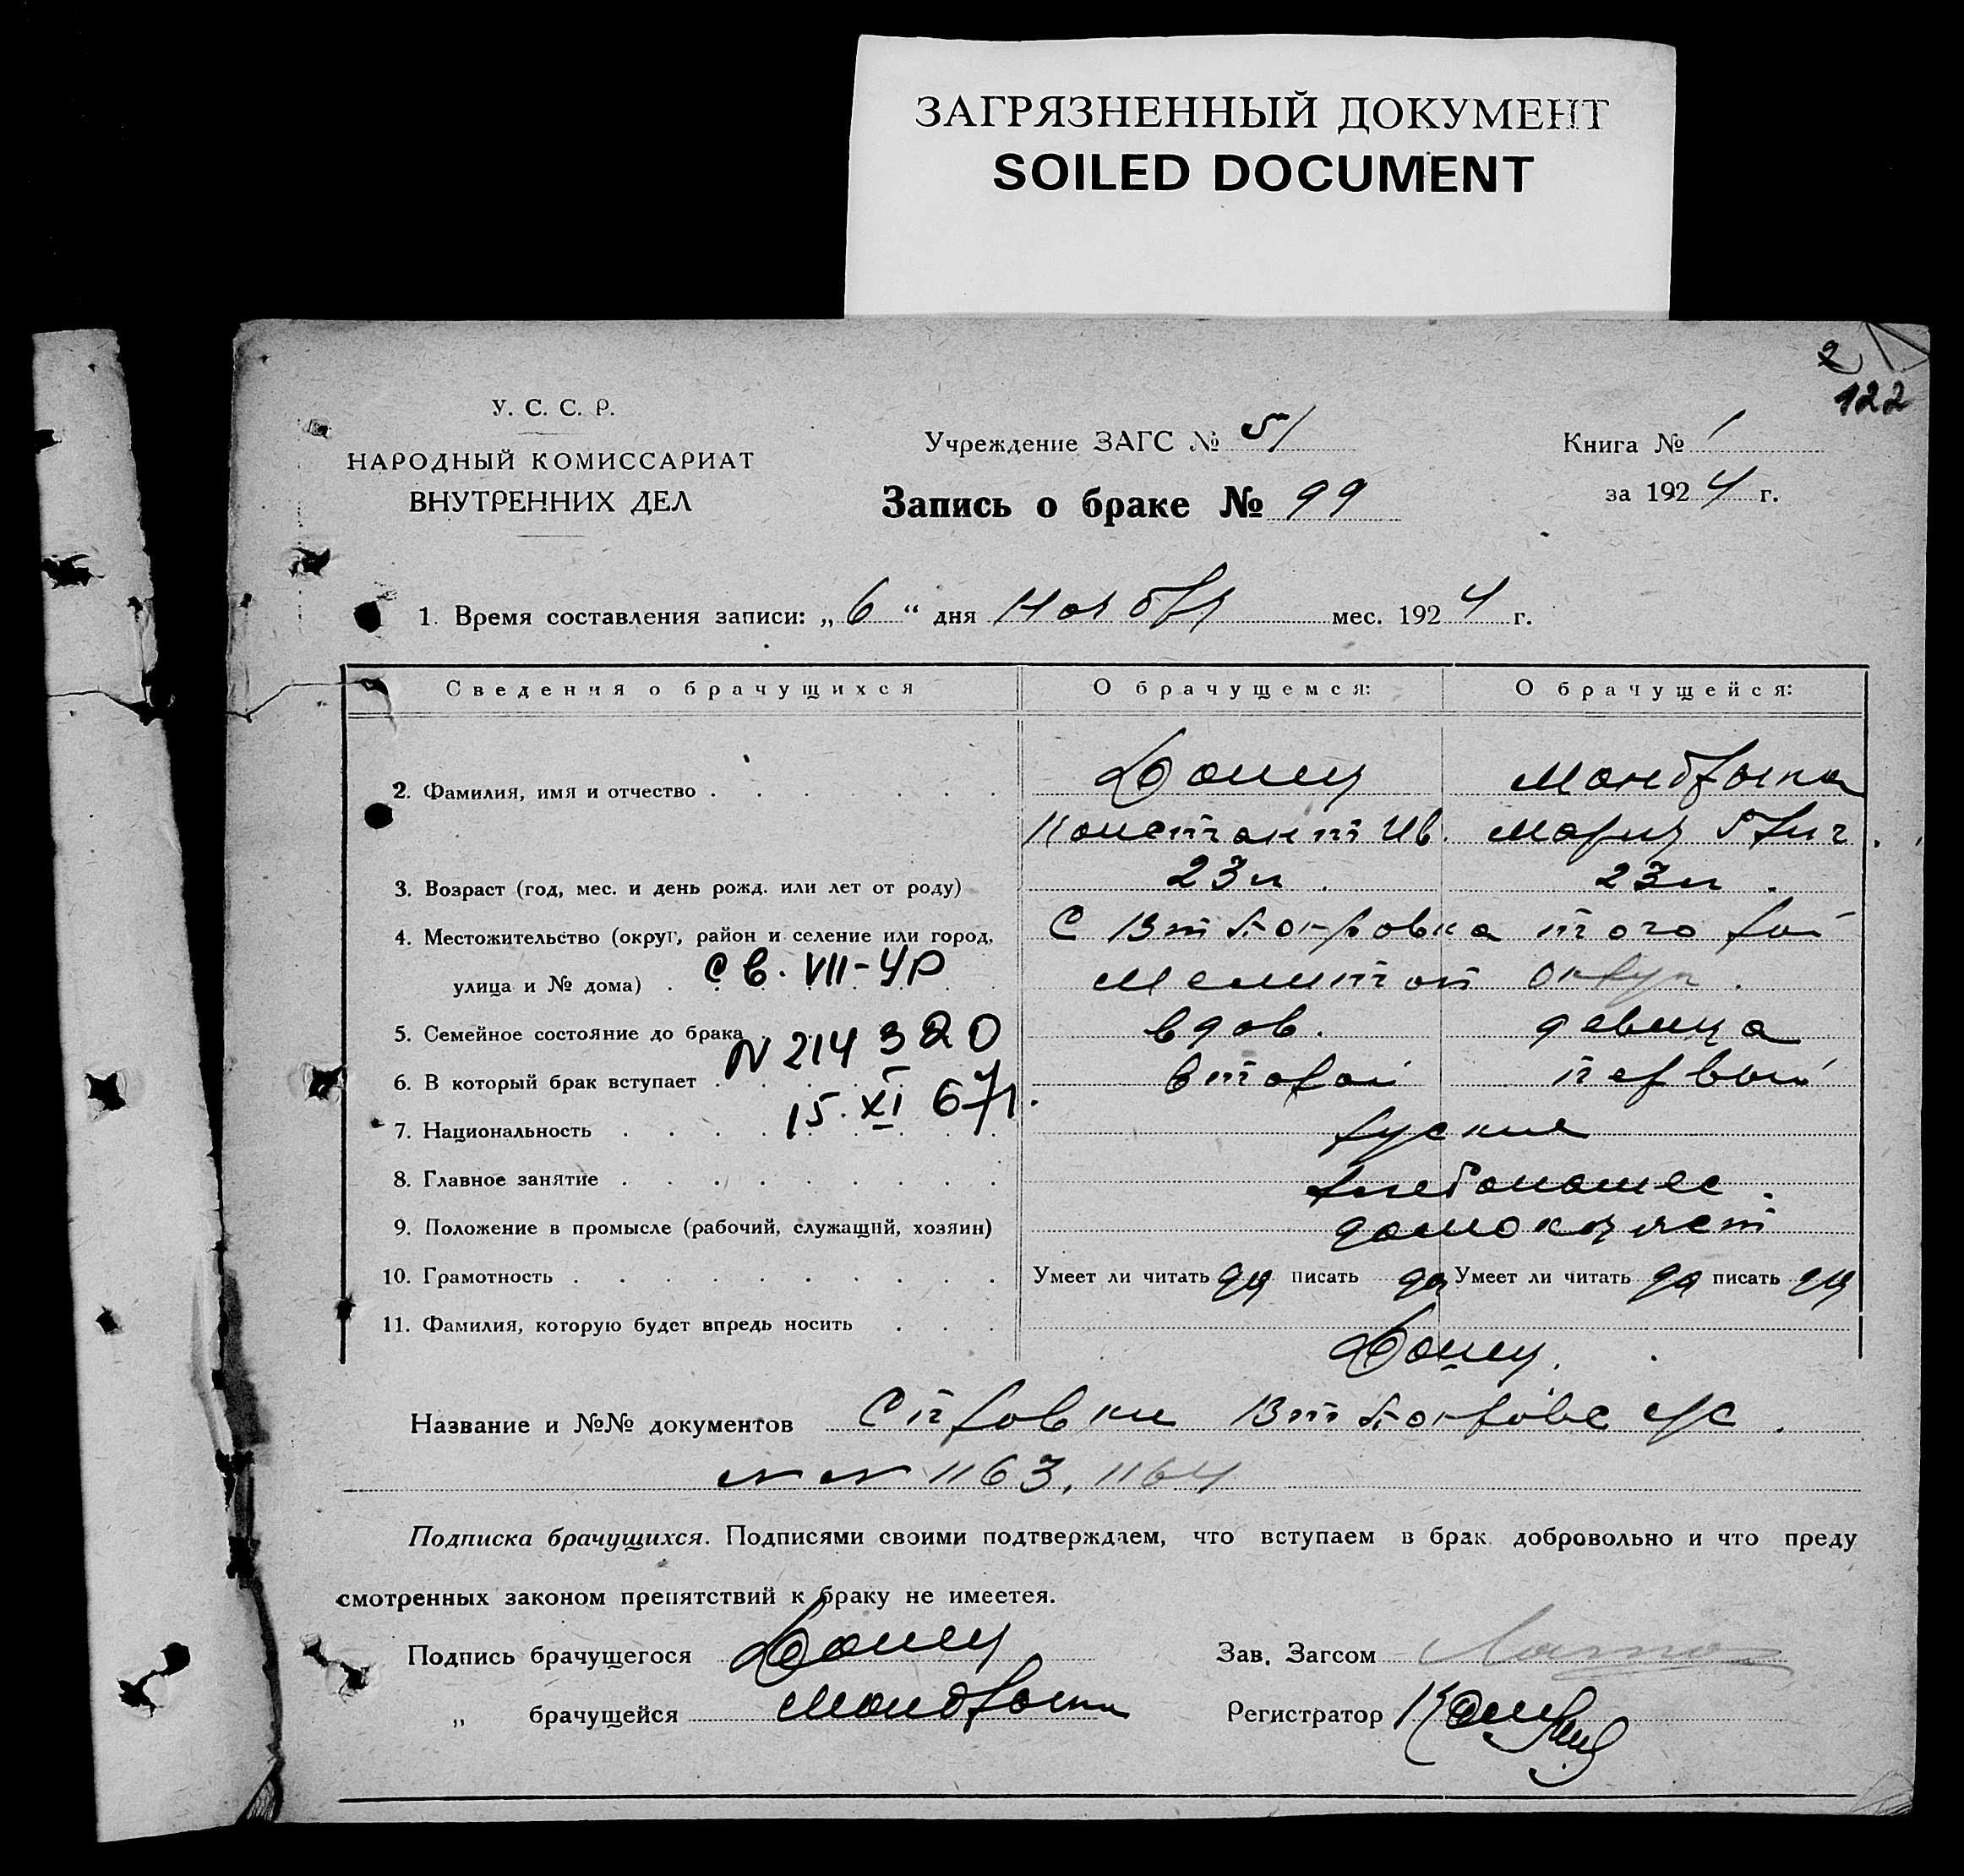 ЗАГРЯЗНЕННЫЙ ДОКУМЕНТ
SOILED DOCUMENT
2
122
У. С. С. Р.
НАРОДНЫЙ КОМИССАРИАТ
ВНУТРЕННИХ ДЕЛ
Учреждение ЗАГС № 51
Запись о браке № 99
Книга № 1
за 1924 г.
1. Время составления записи: „6“ дня Ноября мес. 1924 г.
Сведения о брачущихся О брачущемся: О брачущейся:
2. Фамилия, имя и отчество
Констант Ив. Мария Григ.
3. Возраст (год, мес. и день рожд. или лет от роду) 23 л. 23 л.
4. Местожительство (округ, район и селение или город, С Вт Покровка того рай
улица и № дома) Мелитоп округ.
св. VII-УР
5. Семейное состояние до брака вдов. девица
N 214320
6. В который брак вступает второй первый
15.XI 67
7. Национальность руские
8. Главное занятие хлебопашес.
9. Положение в промысле (рабочий, служащий, хозяин)
10. Грамотность Умеет ли читать да писать да Умеет ли читать да писать да
11. Фамилия, которую будет впредь носить
Название и №№ документов Справки Вт Покровс с/с.
№№ 1163, 1164
Подписка брачущихся. Подписями своими подтверждаем, что вступаем в брак добровольно и что преду
смотренных законом препятствий к браку не имеетея.
Подпись брачущегося
Зав. Загсом
„ брачущейся
Регистратор